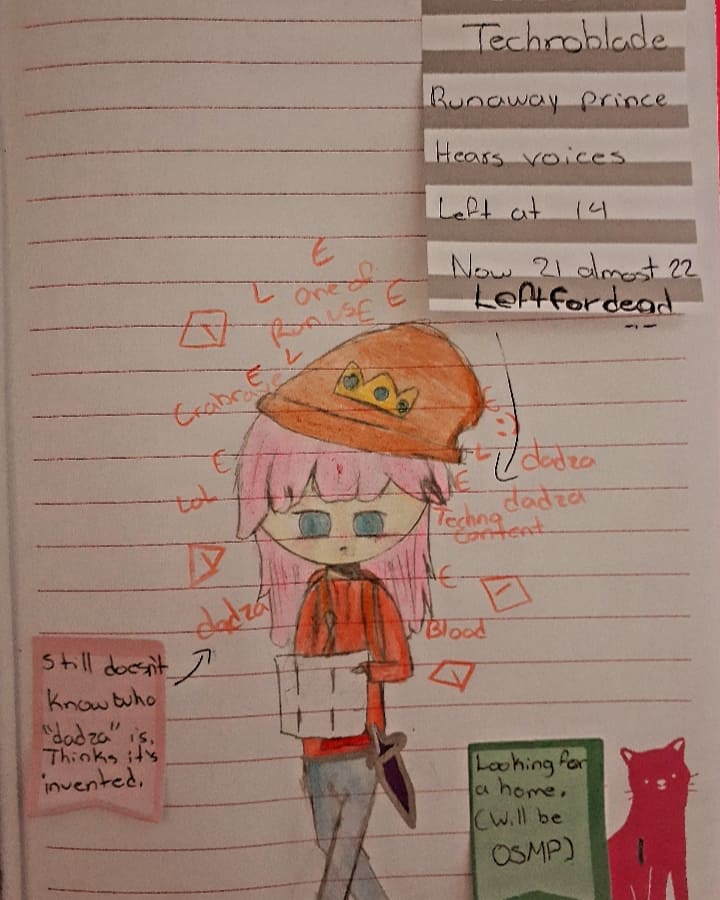 Technoblade
Runaway prince
Hears voices
Left at 14
Now 21 almost 22
Left for dead
E
L one of E
Run us E
L
E
Crabrave
E
:)
E
L dadza
E
Lol
dadza
Techno
Content
E
dadza
Blood
Still doesn't
know who
"dadza" is.
Thinks it's
invented.
Looking for
a home.
(Will be
OSMP)